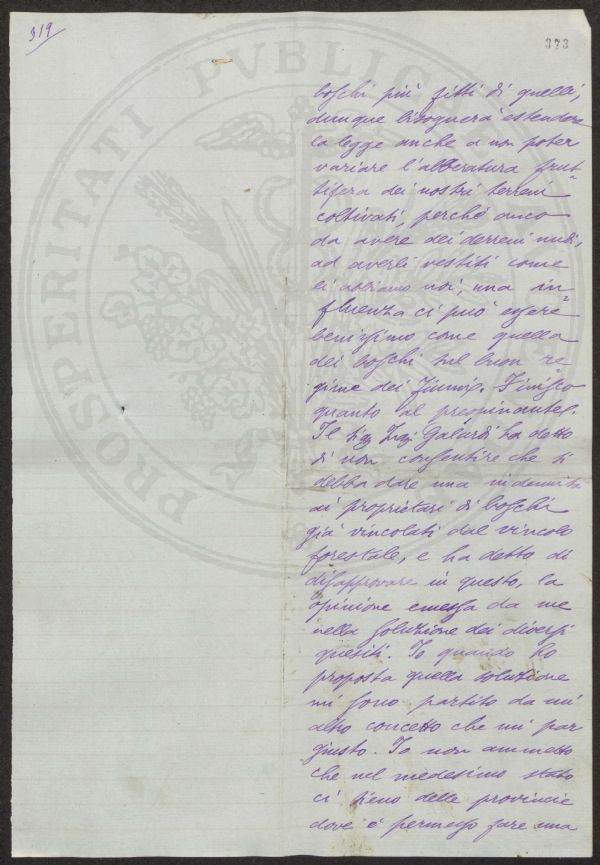 319
373
PROSPERITATI PVBLICAE
boschi più fitti di quelli,
dunque bisognerà estendere
la legge anche a non poter
variare l'alberatura frut-
tifera dei nostri terreni
coltivati, perchè anco
da avere dei terreni nudi,
ad averli vestiti come
li abbiamo noi, una in-
fluenza ci può essere
benissimo come quella
dei boschi sul buon re
gime dei fiumi. Finisco
quanto al preopinante.
Il Sig Galardi ha detto
di non consentire che si
debba dare una indennità
ai proprietari di boschi
già vincolati dal vincolo
forestale, e ha detto di
disapprovare in questo, la
opinione emessa da me
nella soluzione dei diversi
quesiti. Io quando ho
proposta quella soluzione
mi sono partito da un
altro concetto che mi par
giusto. Io non ammetto
che nel medesimo stato
ci sieno delle provincie
dove è permesso fare una